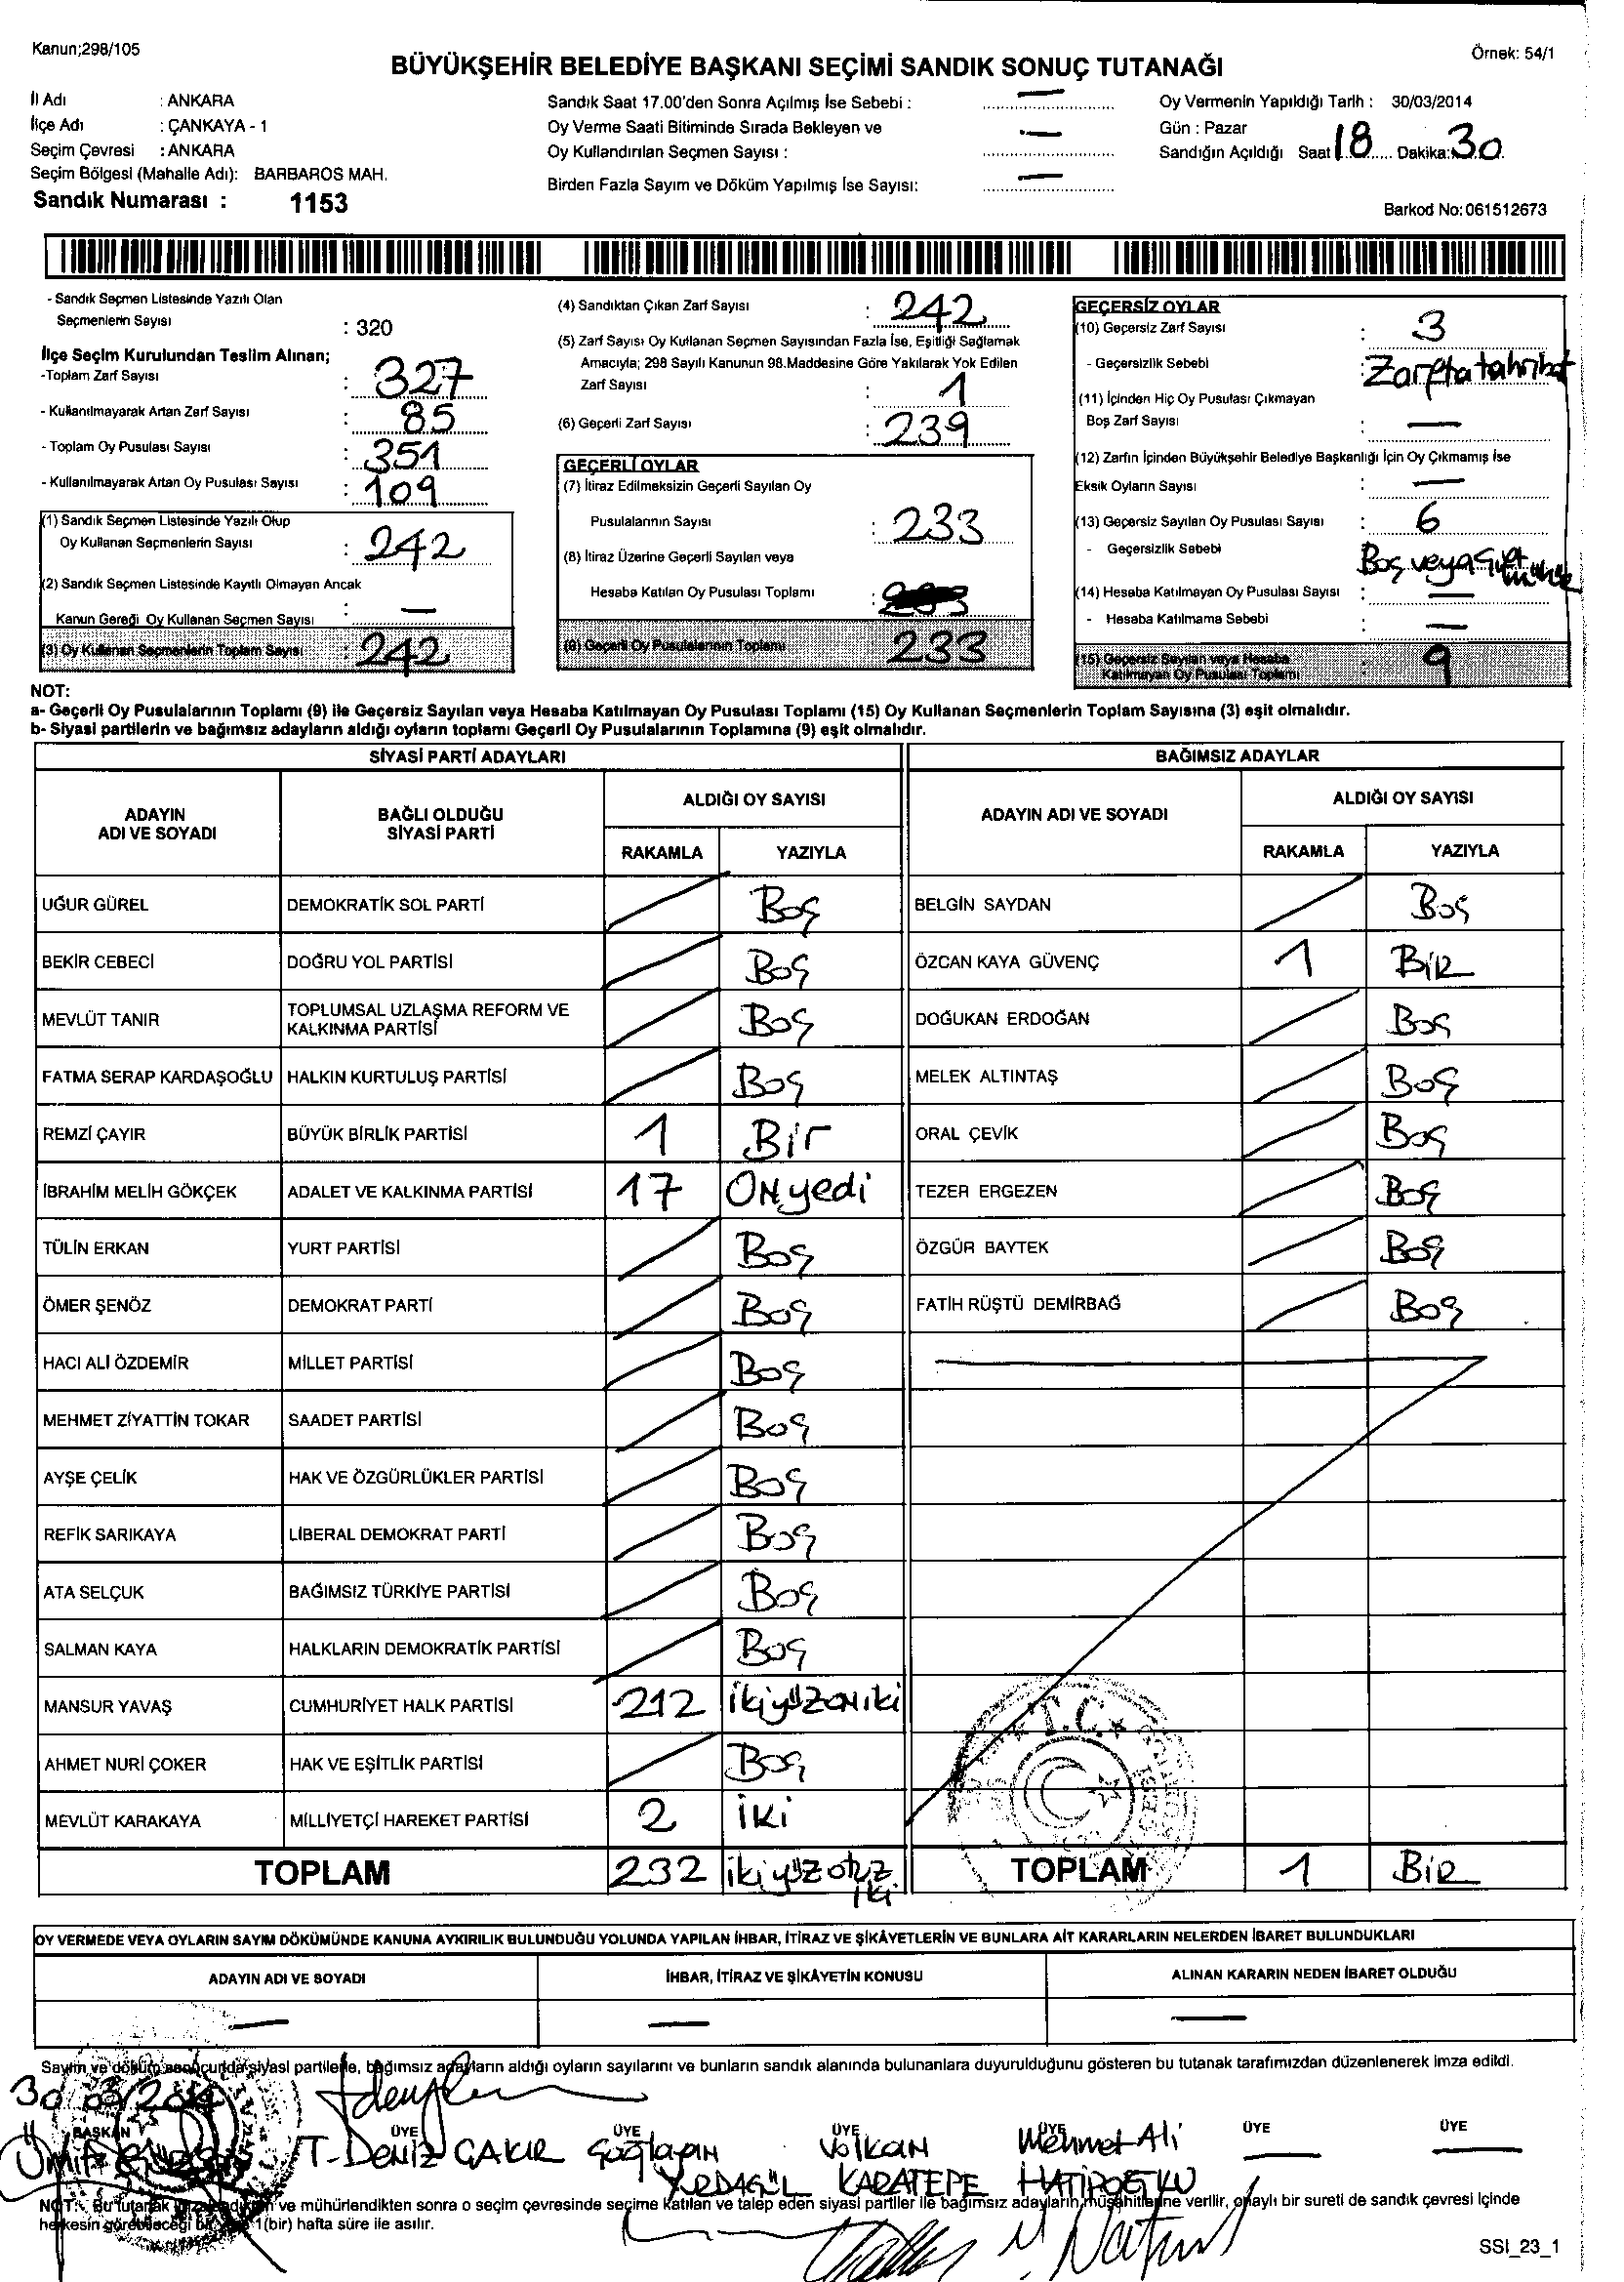 Kanun;298/105
Örnek: 54/1
BÜYÜKŞEHİR BELEDİYE BAŞKANI SEÇİMİ SANDIK SONUÇ TUTANAĞI
İl Adı : ANKARA
İlçe Adı : ÇANKAYA - 1
Seçim Çevresi : ANKARA
Seçim Bölgesi (Mahalle Adı): BARBAROS MAH.
Sandık Numarası : 1153
Sandık Saat 17.00'den Sonra Açılmış İse Sebebi : —
Oy Verme Saati Bitiminde Sırada Bekleyen ve
Oy Kullandırılan Seçmen Sayısı : —
Birden Fazla Sayım ve Döküm Yapılmış İse Sayısı: —
Oy Vermenin Yapıldığı Tarih : 30/03/2014
Gün : Pazar
Sandığın Açıldığı Saat 18 Dakika: 30
Barkod No: 061512673
- Sandık Seçmen Listesinde Yazılı Olan
Seçmenlerin Sayısı : 320
İlçe Seçim Kurulundan Teslim Alınan;
-Toplam Zarf Sayısı : 327
- Kullanılmayarak Artan Zarf Sayısı : 85
- Toplam Oy Pusulası Sayısı : 351
- Kullanılmayarak Artan Oy Pusulası Sayısı : 109
(1) Sandık Seçmen Listesinde Yazılı Olup
Oy Kullanan Seçmenlerin Sayısı : 242
(2) Sandık Seçmen Listesinde Kayıtlı Olmayan Ancak
Kanun Gereği Oy Kullanan Seçmen Sayısı : —
(3) Oy Kullanan Seçmenlerin Toplam Sayısı : 242
(4) Sandıktan Çıkan Zarf Sayısı : 242
(5) Zarf Sayısı Oy Kullanan Seçmen Sayısından Fazla İse, Eşitliği Sağlamak
Amacıyla; 298 Sayılı Kanunun 98.Maddesine Göre Yakılarak Yok Edilen
Zarf Sayısı : 1
(6) Geçerli Zarf Sayısı : 239
GEÇERLİ OYLAR
(7) İtiraz Edilmeksizin Geçerli Sayılan Oy
Pusulalarının Sayısı : 233
(8) İtiraz Üzerine Geçerli Sayılan veya
Hesaba Katılan Oy Pusulası Toplamı :
(9) Geçerli Oy Pusulalarının Toplamı 233
GEÇERSİZ OYLAR
(10) Geçersiz Zarf Sayısı : 3
- Geçersizlik Sebebi : Zarfta tahribat
(11) İçinden Hiç Oy Pusulası Çıkmayan
Boş Zarf Sayısı : —
(12) Zarfın İçinden Büyükşehir Belediye Başkanlığı İçin Oy Çıkmamış İse
Eksik Oyların Sayısı : —
(13) Geçersiz Sayılan Oy Pusulası Sayısı : 6
- Geçersizlik Sebebi Boş veya çift mühür
(14) Hesaba Katılmayan Oy Pusulası Sayısı : —
- Hesaba Katılmama Sebebi : —
(15) Geçersiz Sayılan veya Hesaba
Katılmayan Oy Pusulası Toplamı : 9
NOT:
a- Geçerli Oy Pusulalarının Toplamı (9) ile Geçersiz Sayılan veya Hesaba Katılmayan Oy Pusulası Toplamı (15) Oy Kullanan Seçmenlerin Toplam Sayısına (3) eşit olmalıdır.
b- Siyasi partilerin ve bağımsız adayların aldığı oyların toplamı Geçerli Oy Pusulalarının Toplamına (9) eşit olmalıdır.
SİYASİ PARTİ ADAYLARI
ADAYIN ADI VE SOYADI BAĞLI OLDUĞU SİYASİ PARTİ ALDIĞI OY SAYISI
RAKAMLA YAZIYLA
UĞUR GÜREL DEMOKRATİK SOL PARTİ Boş
BEKİR CEBECİ DOĞRU YOL PARTİSİ Boş
MEVLÜT TANIR TOPLUMSAL UZLAŞMA REFORM VE KALKINMA PARTİSİ Boş
FATMA SERAP KARDAŞOĞLU HALKIN KURTULUŞ PARTİSİ Boş
REMZİ ÇAYIR BÜYÜK BİRLİK PARTİSİ 1 Bir
İBRAHİM MELİH GÖKÇEK ADALET VE KALKINMA PARTİSİ 17 ONyedi
TÜLİN ERKAN YURT PARTİSİ Boş
ÖMER ŞENÖZ DEMOKRAT PARTİ Boş
HACI ALİ ÖZDEMİR MİLLET PARTİSİ Boş
MEHMET ZİYATTİN TOKAR SAADET PARTİSİ Boş
AYŞE ÇELİK HAK VE ÖZGÜRLÜKLER PARTİSİ Boş
REFİK SARIKAYA LİBERAL DEMOKRAT PARTİ Boş
ATA SELÇUK BAĞIMSIZ TÜRKİYE PARTİSİ Boş
SALMAN KAYA HALKLARIN DEMOKRATİK PARTİSİ Boş
MANSUR YAVAŞ CUMHURİYET HALK PARTİSİ 212 ikiyüzoniki
AHMET NURİ ÇOKER HAK VE EŞİTLİK PARTİSİ Boş
MEVLÜT KARAKAYA MİLLİYETÇİ HAREKET PARTİSİ 2 iki
TOPLAM 232 ikiyüz otuz iki
BAĞIMSIZ ADAYLAR
ADAYIN ADI VE SOYADI ALDIĞI OY SAYISI
RAKAMLA YAZIYLA
BELGİN SAYDAN Boş
ÖZCAN KAYA GÜVENÇ 1 BİR
DOĞUKAN ERDOĞAN Boş
MELEK ALTINTAŞ Boş
ORAL ÇEVİK Boş
TEZER ERGEZEN Boş
ÖZGÜR BAYTEK Boş
FATİH RÜŞTÜ DEMİRBAĞ Boş
T.C.
TOPLAM 1 BİR
OY VERMEDE VEYA OYLARIN SAYIM DÖKÜMÜNDE KANUNA AYKIRILIK BULUNDUĞU YOLUNDA YAPILAN İHBAR, İTİRAZ VE ŞİKÂYETLERİN VE BUNLARA AİT KARARLARIN NELERDEN İBARET BULUNDUKLARI
ADAYIN ADI VE SOYADI İHBAR, İTİRAZ VE ŞİKÂYETİN KONUSU ALINAN KARARIN NEDEN İBARET OLDUĞU
— — —
Sayım ve döküm sonucunda siyasi partilerle, bağımsız adayların aldığı oyların sayılarını ve bunların sandık alanında bulunanlara duyurulduğunu gösteren bu tutanak tarafımızdan düzenlenerek imza edildi.
30 03/2014
BAŞKAN ÜYE ÜYE ÜYE ÜYE ÜYE ÜYE
Ümit T. DENİZ ÇAKIR Çağlayan YURDAGÜL Volkan KARATEPE Mehmet Ali HATİPOĞLU — —
NOT: Bu tutanak imzalandıktan ve mühürlendikten sonra o seçim çevresinde seçime katılan ve talep eden siyasi partiler ile bağımsız adayların müşahitlerine verilir, onaylı bir sureti de sandık çevresi içinde
herkesin görebileceği bir yere 1(bir) hafta süre ile asılır.
SSI_23_1